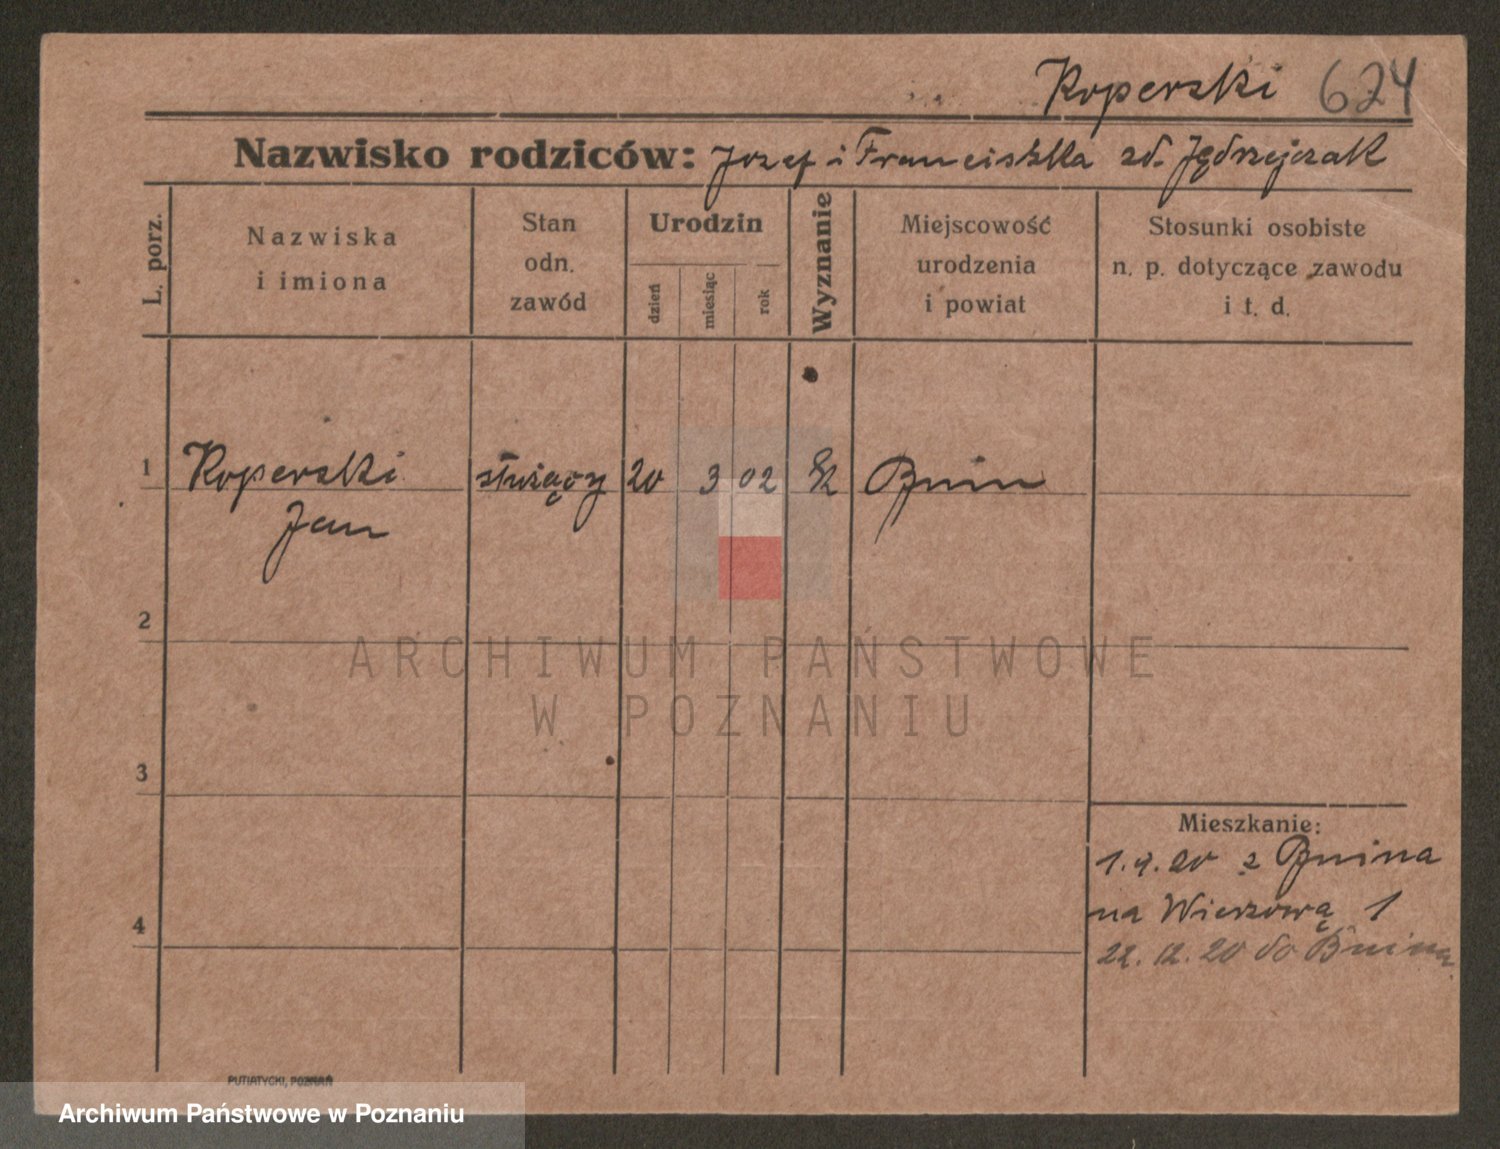 Koperski 624
Nazwisko rodziców: Jozef i Franciszka zd. Jędrzejczak
L. porz.
Nazwiska
i imiona
Stan
odn.
zawód
Urodzin
dzień
miesiąc
rok
Wyznanie
Miejscowość
urodzenia
i powiat
Stosunki osobiste
n. p. dotyczące zawodu
i t. d.
1 Koperski służący 20 3 02 Bnin
Jan
2
ARCHIWUM PAŃSTWOWE
W POZNANIU
3
Mieszkanie:
1.4.20 z Bnina
na Wierzową 1
4
22.12.20 do Bnina
PUTIATYCKI, POZNAŃ
Archiwum Państwowe w Poznaniu